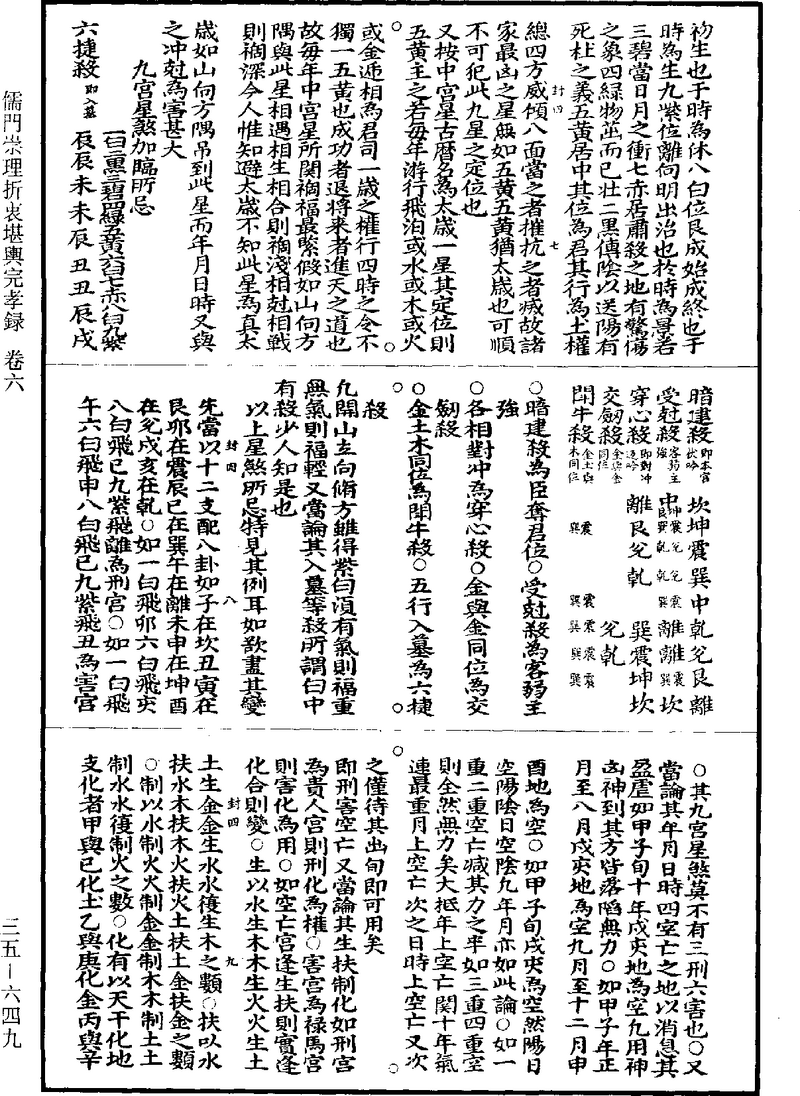 初生也于時為休八白位艮成始成終也于
時為生九紫位離向明出治也於時為景若
三碧當日月之衝七赤居肅殺之地有驚傷
之象四綠物茁而已壯二黑傳陰以送陽有
死杜之義五黃居中其位為君其行為土權
封四 七
總四方威傾八面當之者摧抗之者滅故諸
家最凶之星無如五黃五黃猶太歲也可順
不可犯此九星之定位也
又按中宮星古曆名為太歲一星其定位則
五黃主之若每年游行飛泊或水或木或火
或金遞相為君司一歲之權行四時之令不
獨一五黃也成功者退將來者進天之道也
故每年中宮星所関禍福最緊假如山向方
隅與此星相遇相生相合則禍淺相尅相戰
則禍深今人惟知避太歲不知此星為真太
歲如山向方隅吊到此星而年月日時又與
之冲尅為害甚大
九宮星煞加臨所忌
一白二黑三碧四綠五黃六白七赤八白九紫
六捷殺 即入墓 辰辰未未辰丑丑辰戌
暗建殺 即本宮伏吟 坎坤震巽中乾兌艮離
受尅殺 客弱主強
穿心殺 即對冲返吟 離艮兌乾 巽震坤坎
交劍殺 金與金同位 兌乾
鬪牛殺 金土與木同位
○暗建殺為臣奪君位○受尅殺為客弱主
強
○各相對冲為穿心殺○金與金同位為交
劍殺
○金土木同位為鬪牛殺○五行入墓為六捷
殺
九開山立向脩方雖得紫白湏有氣則福重
無氣則福輕又當論其入墓等殺所謂白中
有殺少人知是也
以上星煞所忌特見其例耳如欲盡其變
封四 八
先當以十二支配八卦如子在坎丑寅在
艮卯在震辰巳在巽午在離未申在坤酉
在兌戌亥在乾○如一白飛卯六白飛寅
八白飛巳九紫飛離為刑宮○如一白飛
午六白飛申八白飛巳九紫飛丑為害宮
○其九宮星煞莫不有三刑六害也○又
當論其年月日時四空亡之地以消息其
盈虛如甲子旬十年戌亥地為空九用神
凶神到其方皆落陷無力○如甲子年正
月至八月戌亥地為空九月至十二月申
酉地為空○如甲子旬戌亥為空然陽日
空陽陰日空陰九年月亦如此論○如一
重二重空亡減其力之半如三重四重空
則全然無力矣大抵年上空亡関十年氣
連最重月上空亡次之日時上空亡又次
之僅待其出旬即可用矣
即刑害空亡又當論其生扶制化如刑宮
為貴人宮則刑化為權○害宮為祿馬宮
則害化為用○如空亡宮逢生扶則實逢
化合則變○生以水生木木生火火生土
封四 九
土生金金生水水復生木之類○扶以水
扶水木扶木火扶火土扶土金扶金之類
○制以水制火火制金金制木木制土土
制水水復制火之數○化有以天干化地
支化者甲與己化土乙與庚化金丙與辛
儒門崇理折衷堪輿完孝録 卷六
三五－六四九